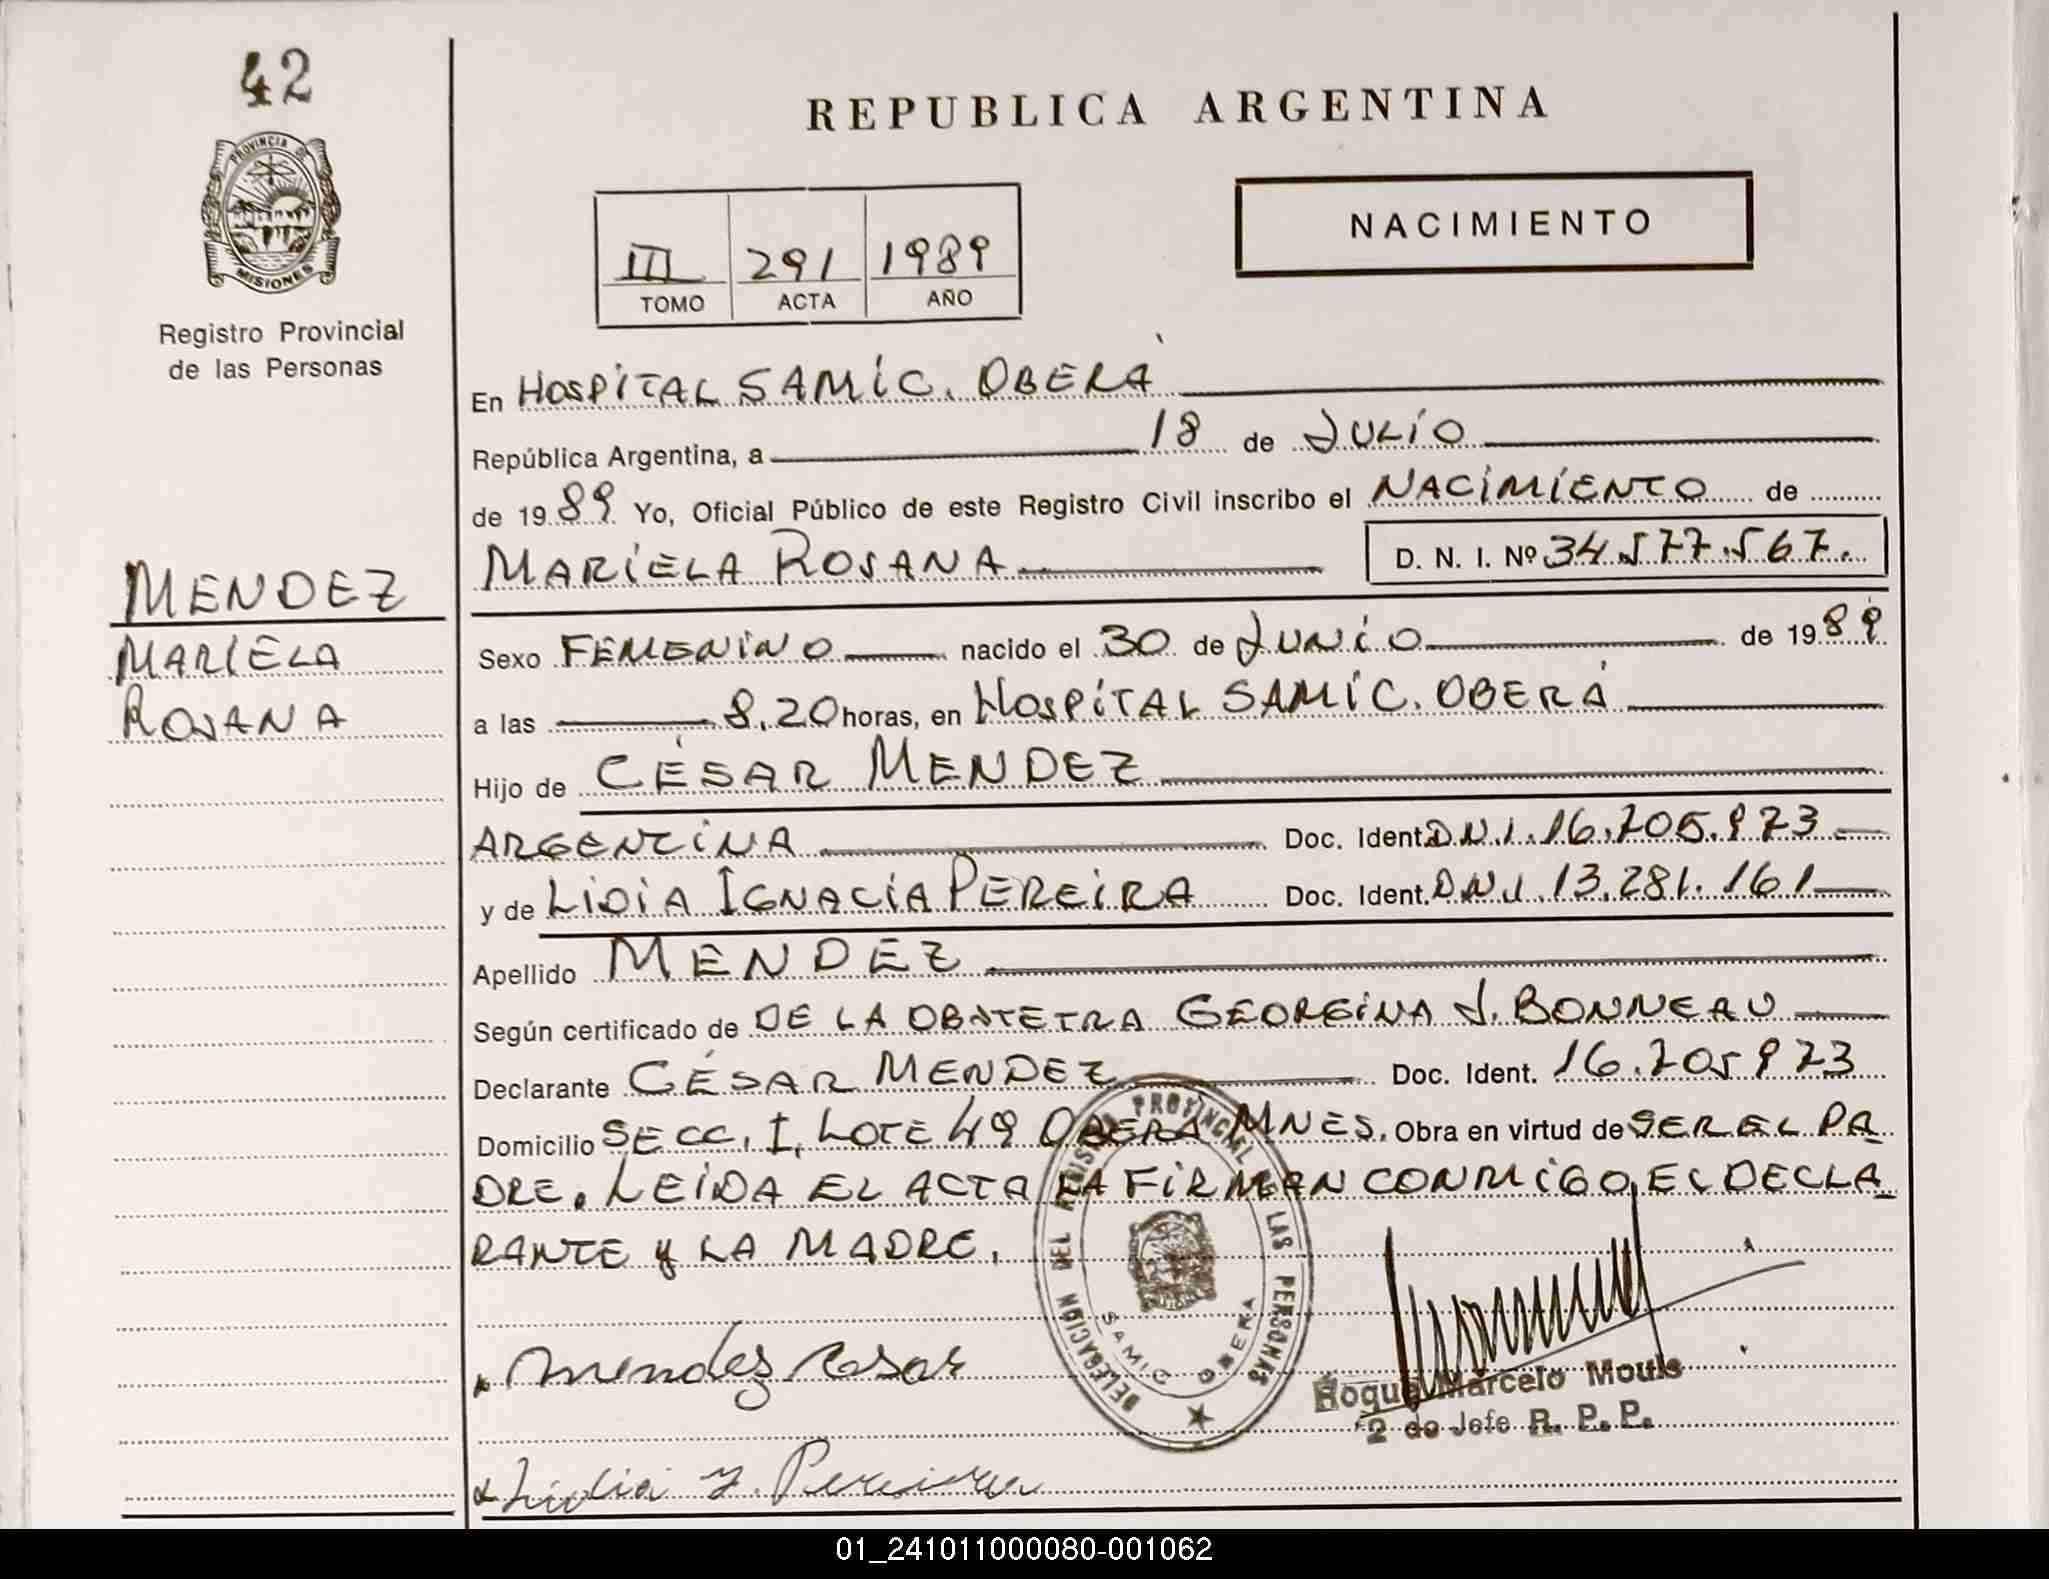 42
REPUBLICA ARGENTINA
PROVINCIA DE
MISIONES
Registro Provincial
de las Personas
NACIMIENTO
III 291 1989
TOMO ACTA AÑO
En HOSPITAL SAMIC. OBERÁ
República Argentina, a 18 de JULIO
de 1989 Yo, Oficial Público de este Registro Civil inscribo el NACIMIENTO de
MARIELA ROSANA D. N. I. Nº 34.577.567.
MENDEZ
MARIELA
ROSANA
Sexo FEMENINO nacido el 30 de JUNIO de 1989
a las 8.20 horas, en HOSPITAL SAMIC. OBERÁ
Hijo de CÉSAR MENDEZ
ARGENTINA Doc. Ident. D.N.I. 16.705.973
y de LIDIA IGNACIA PEREIRA Doc. Ident. D.N.I. 13.281.161
Apellido MENDEZ
Según certificado de DE LA OBSTETRA GEORGINA J. BONNEAU
Declarante CÉSAR MENDEZ Doc. Ident. 16.705.973
Domicilio SECC. I, LOTE 49 OBERÁ MNES. Obra en virtud de SER EL PA
DRE. LEIDA EL ACTA LA FIRMAN CONMIGO, EL DECLA
RANTE y LA MADRE.
DELEGACION DEL REGISTRO PROVINCIAL DE LAS PERSONAS
SAMIC OBERA
mendez
Roque Marcelo Moutis
2 do Jefe R. P. P.
Lidia I. Pereira
01_241011000080-001062